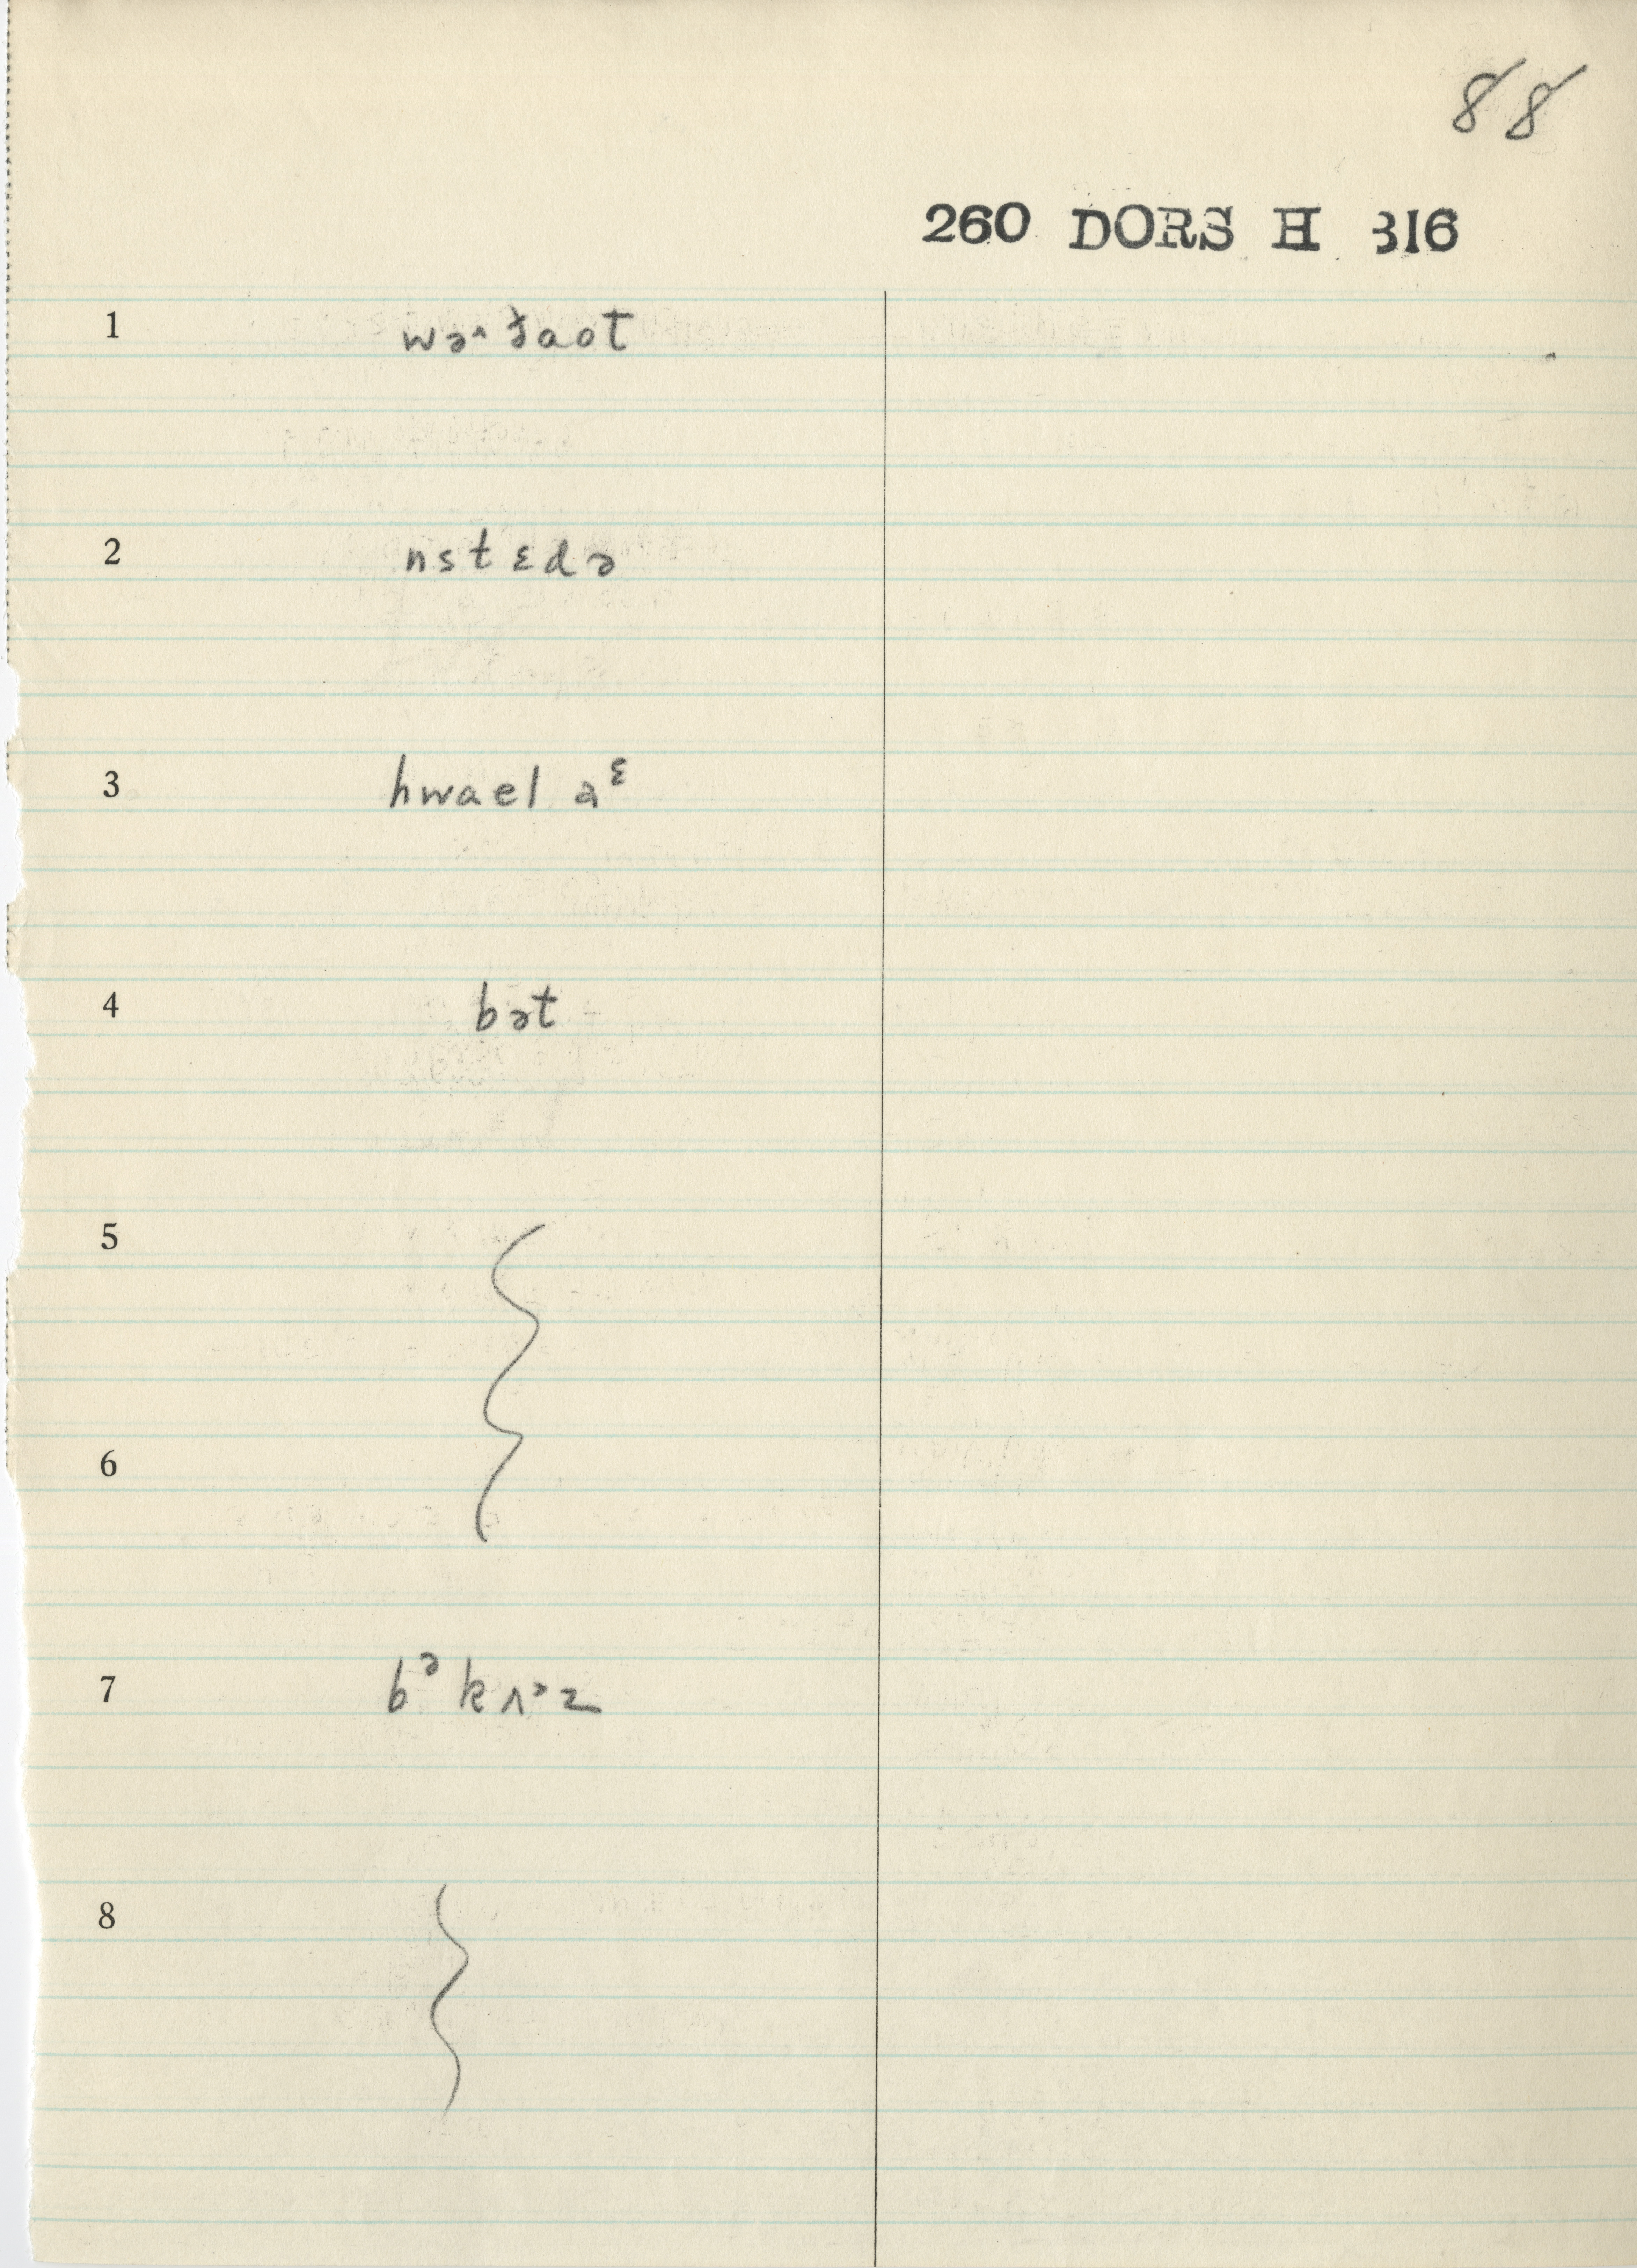 88
260 DORS H 316
1
2 nstɛdə
3 hwael aᵋ
4 bət
5
6
7 bᵊ kʌᵊz
8